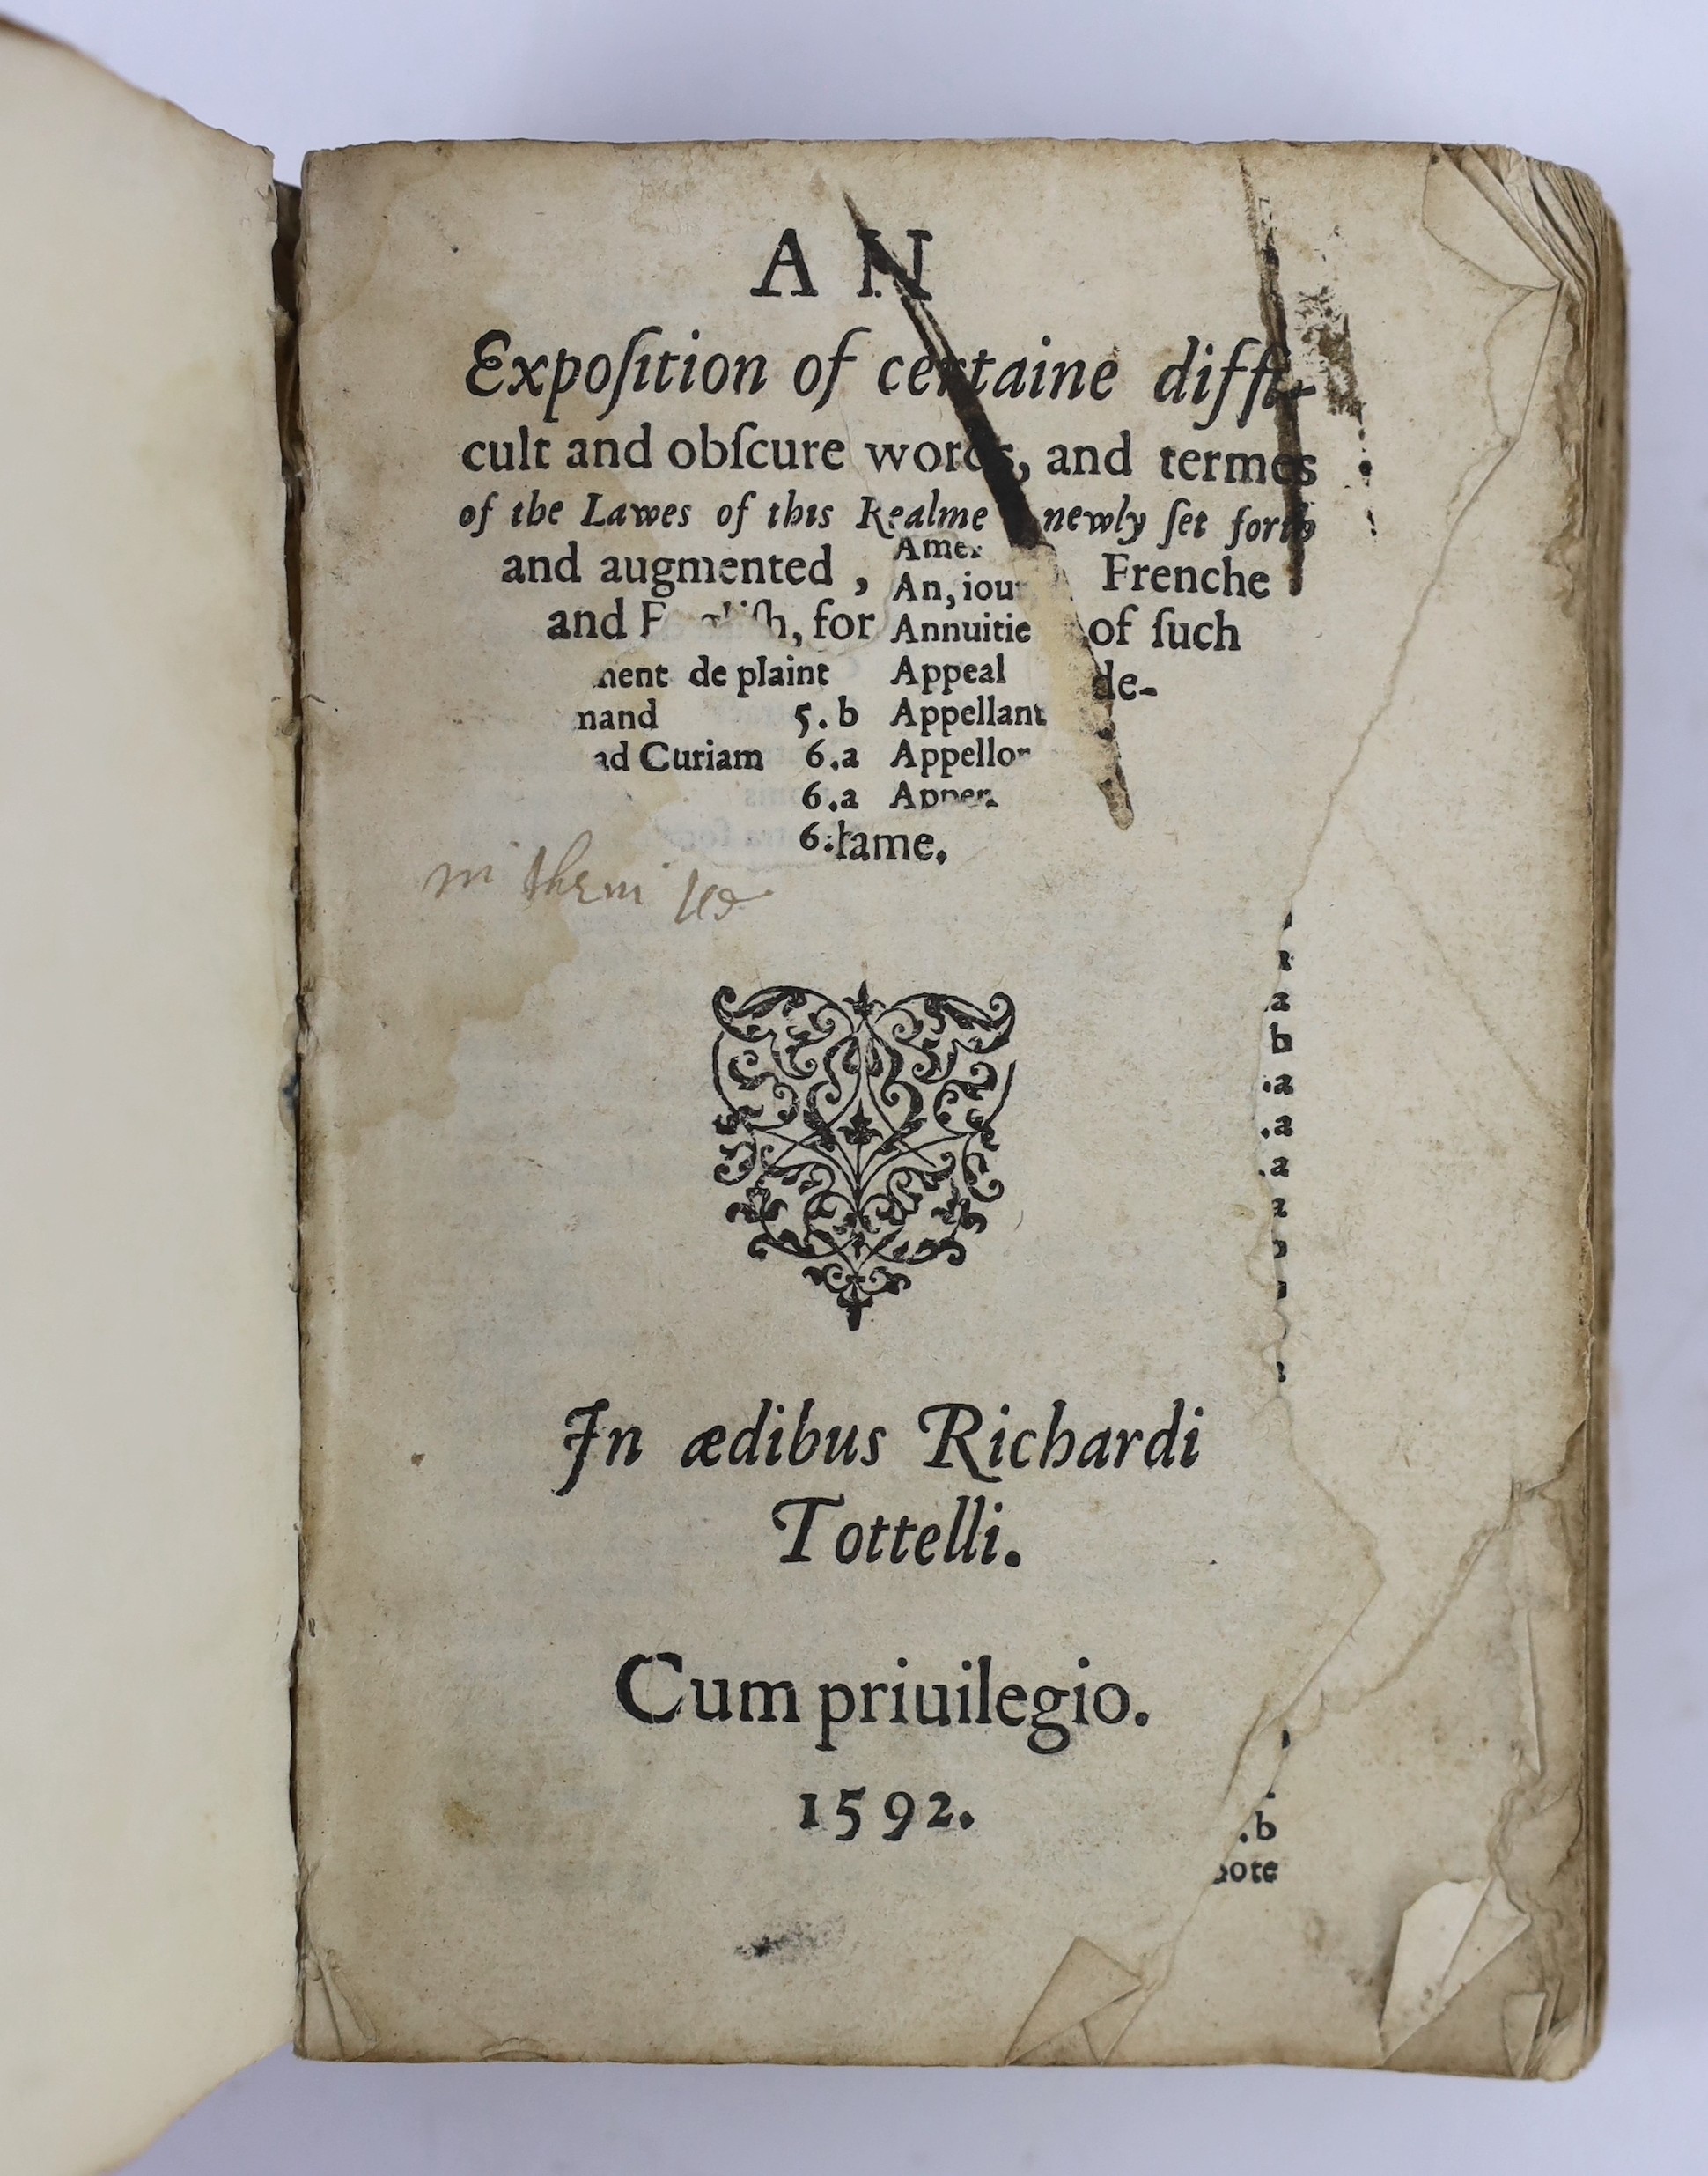 A N
Expoſition of certaine diffi-
cult and obſcure words, and termes
of the Lawes of this Realme newly ſet forth
and augmented, Frenche
and Engliſh, for of ſuch
de-
ſame.
Ame
An, iour
Annuitie
nent de plaint Appeal
mand 5.b Appellant
ad Curiam 6.a Appellor
6.a Apper
6.
a
b
.a
.a
.a
a
In ædibus Richardi
Tottelli.
Cum priuilegio.
1592.
.b
note